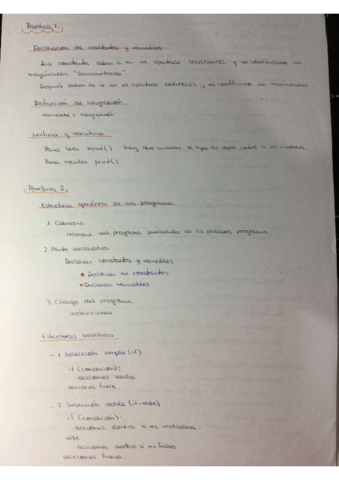 Práctica 1.
Declaración de constantes y variables
Las constantes deben ir en el apartado CONSTANTES y se identifican en
mayúsculas.
Después deben de ir en el apartado variables y se identifican en minúsculas
Instrucción de asignación
variable = asignación
Lectura y escritura
Para leer input() hay que el tipo de dato
Para escribir print()
Práctica 2.
Estructura genérica de un programa
1. Cabecera
Nombre del programa precedido de la palabra programa
2. Parte declarativa
Declarar constantes y variables
Declarar de constantes
Declarar variables
3. Código del programa
instrucciones
Estructuras selectivas
- 1 Selección simple (if)
if (condición):
acciones dentro
acciones fuera
- 2 Selección doble (if-else)
if (condición):
acciones dentro si es verdadera
else
acciones dentro si es falso
acciones fuera